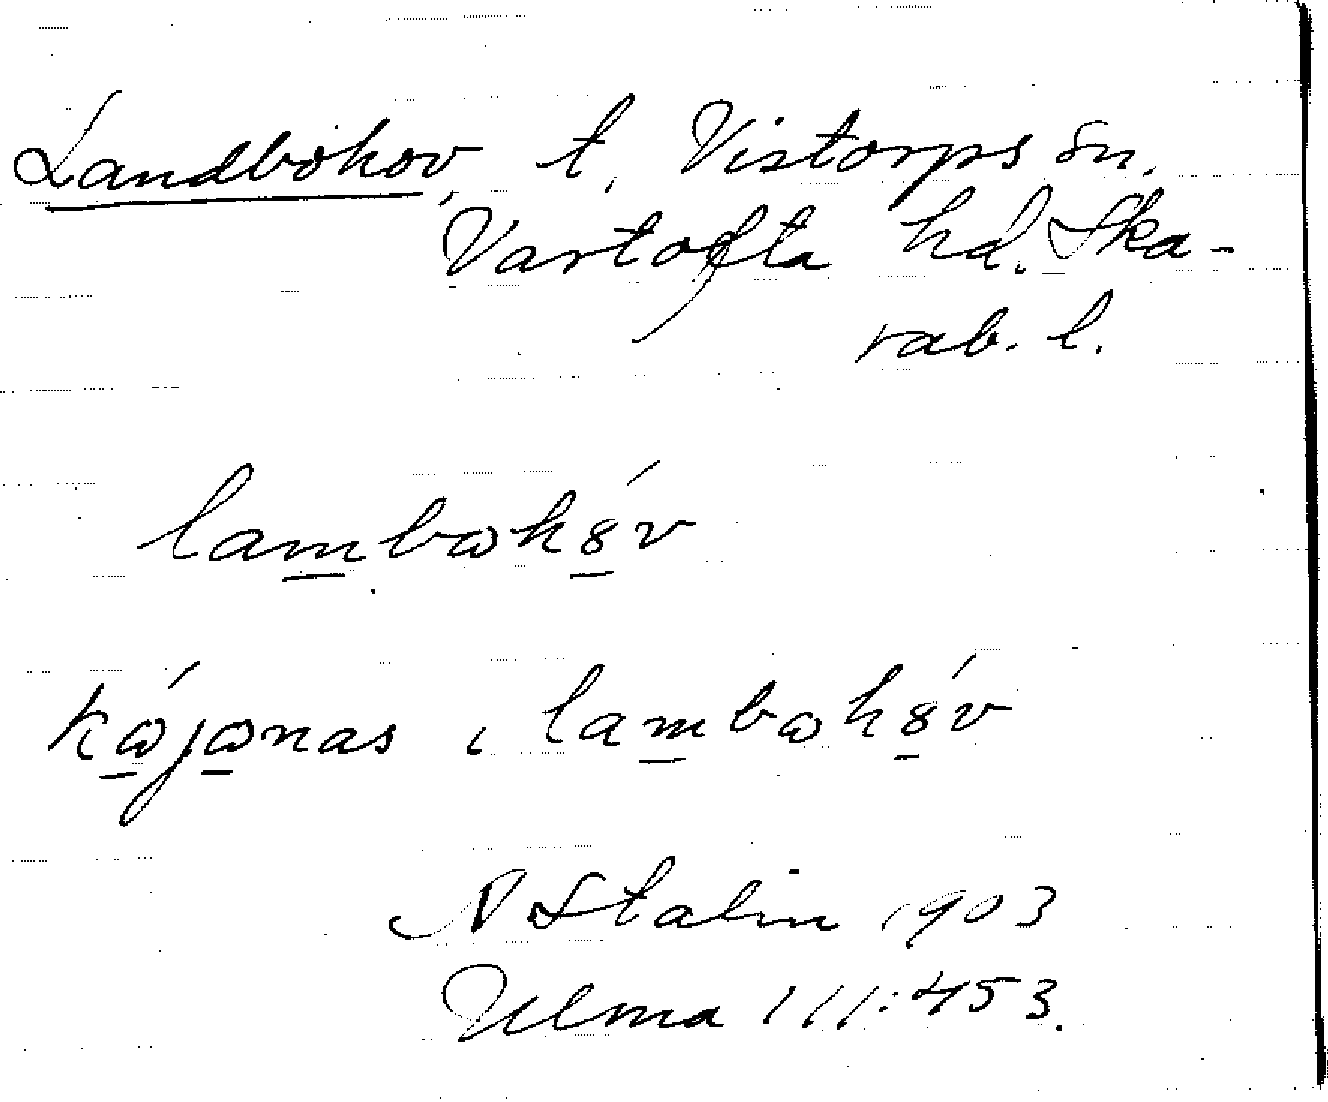 Landbohov, t. Vistorps sn.
Vartofta hd. Ska-
rab. l.
lambωhȣ́v
kώjωnas ı lambωhȣ́v
N Stalin 1903
Ulma 111:453.